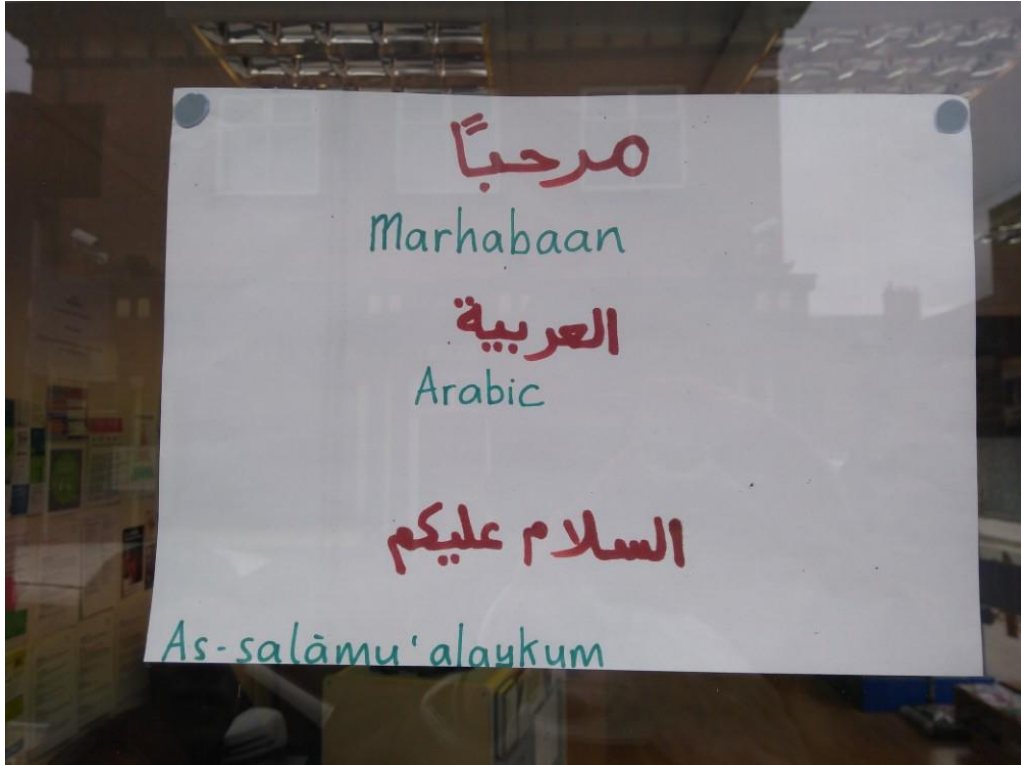 مرحبًا
Marhabaan
العربية
Arabic
السلام عليكم
As-salāmu 'alaykum